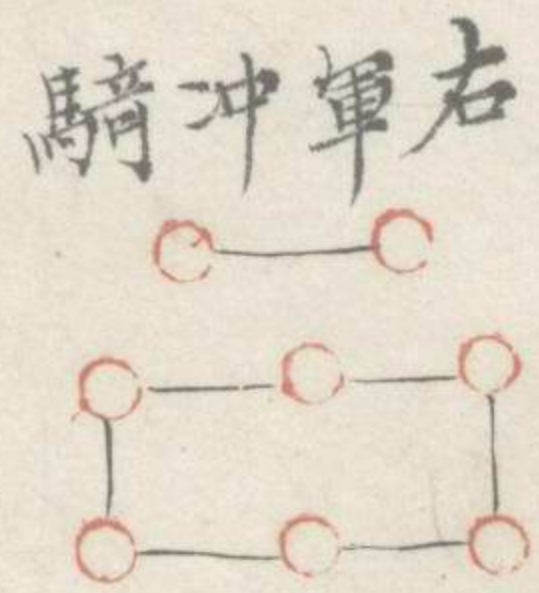 右軍冲騎